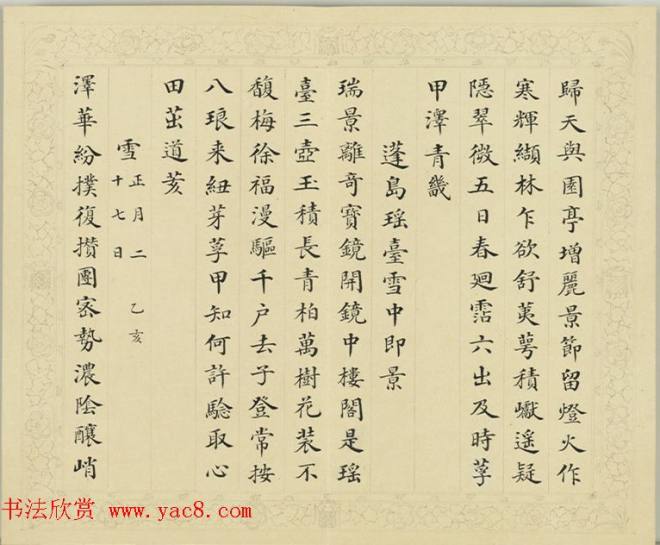 歸天與園亭增麗景節留燈火作
寒輝纈林乍欲舒荑萼積巘遙疑
隱翠微五日春迴霑六出及時莩
甲澤青畿
蓬島瑤臺雪中即景
瑞景離奇寶鏡開鏡中樓閣是瑤
臺三壺玉積長青柏萬樹花裝不
馥梅徐福漫驅千户去子登常按
八琅来紐芽莩甲知何許騐取心
田茁道荄
雪 正月二十七日 乙亥
澤華紛撲復攢團密勢濃陰釀峭
书法欣赏 www.yac8.com